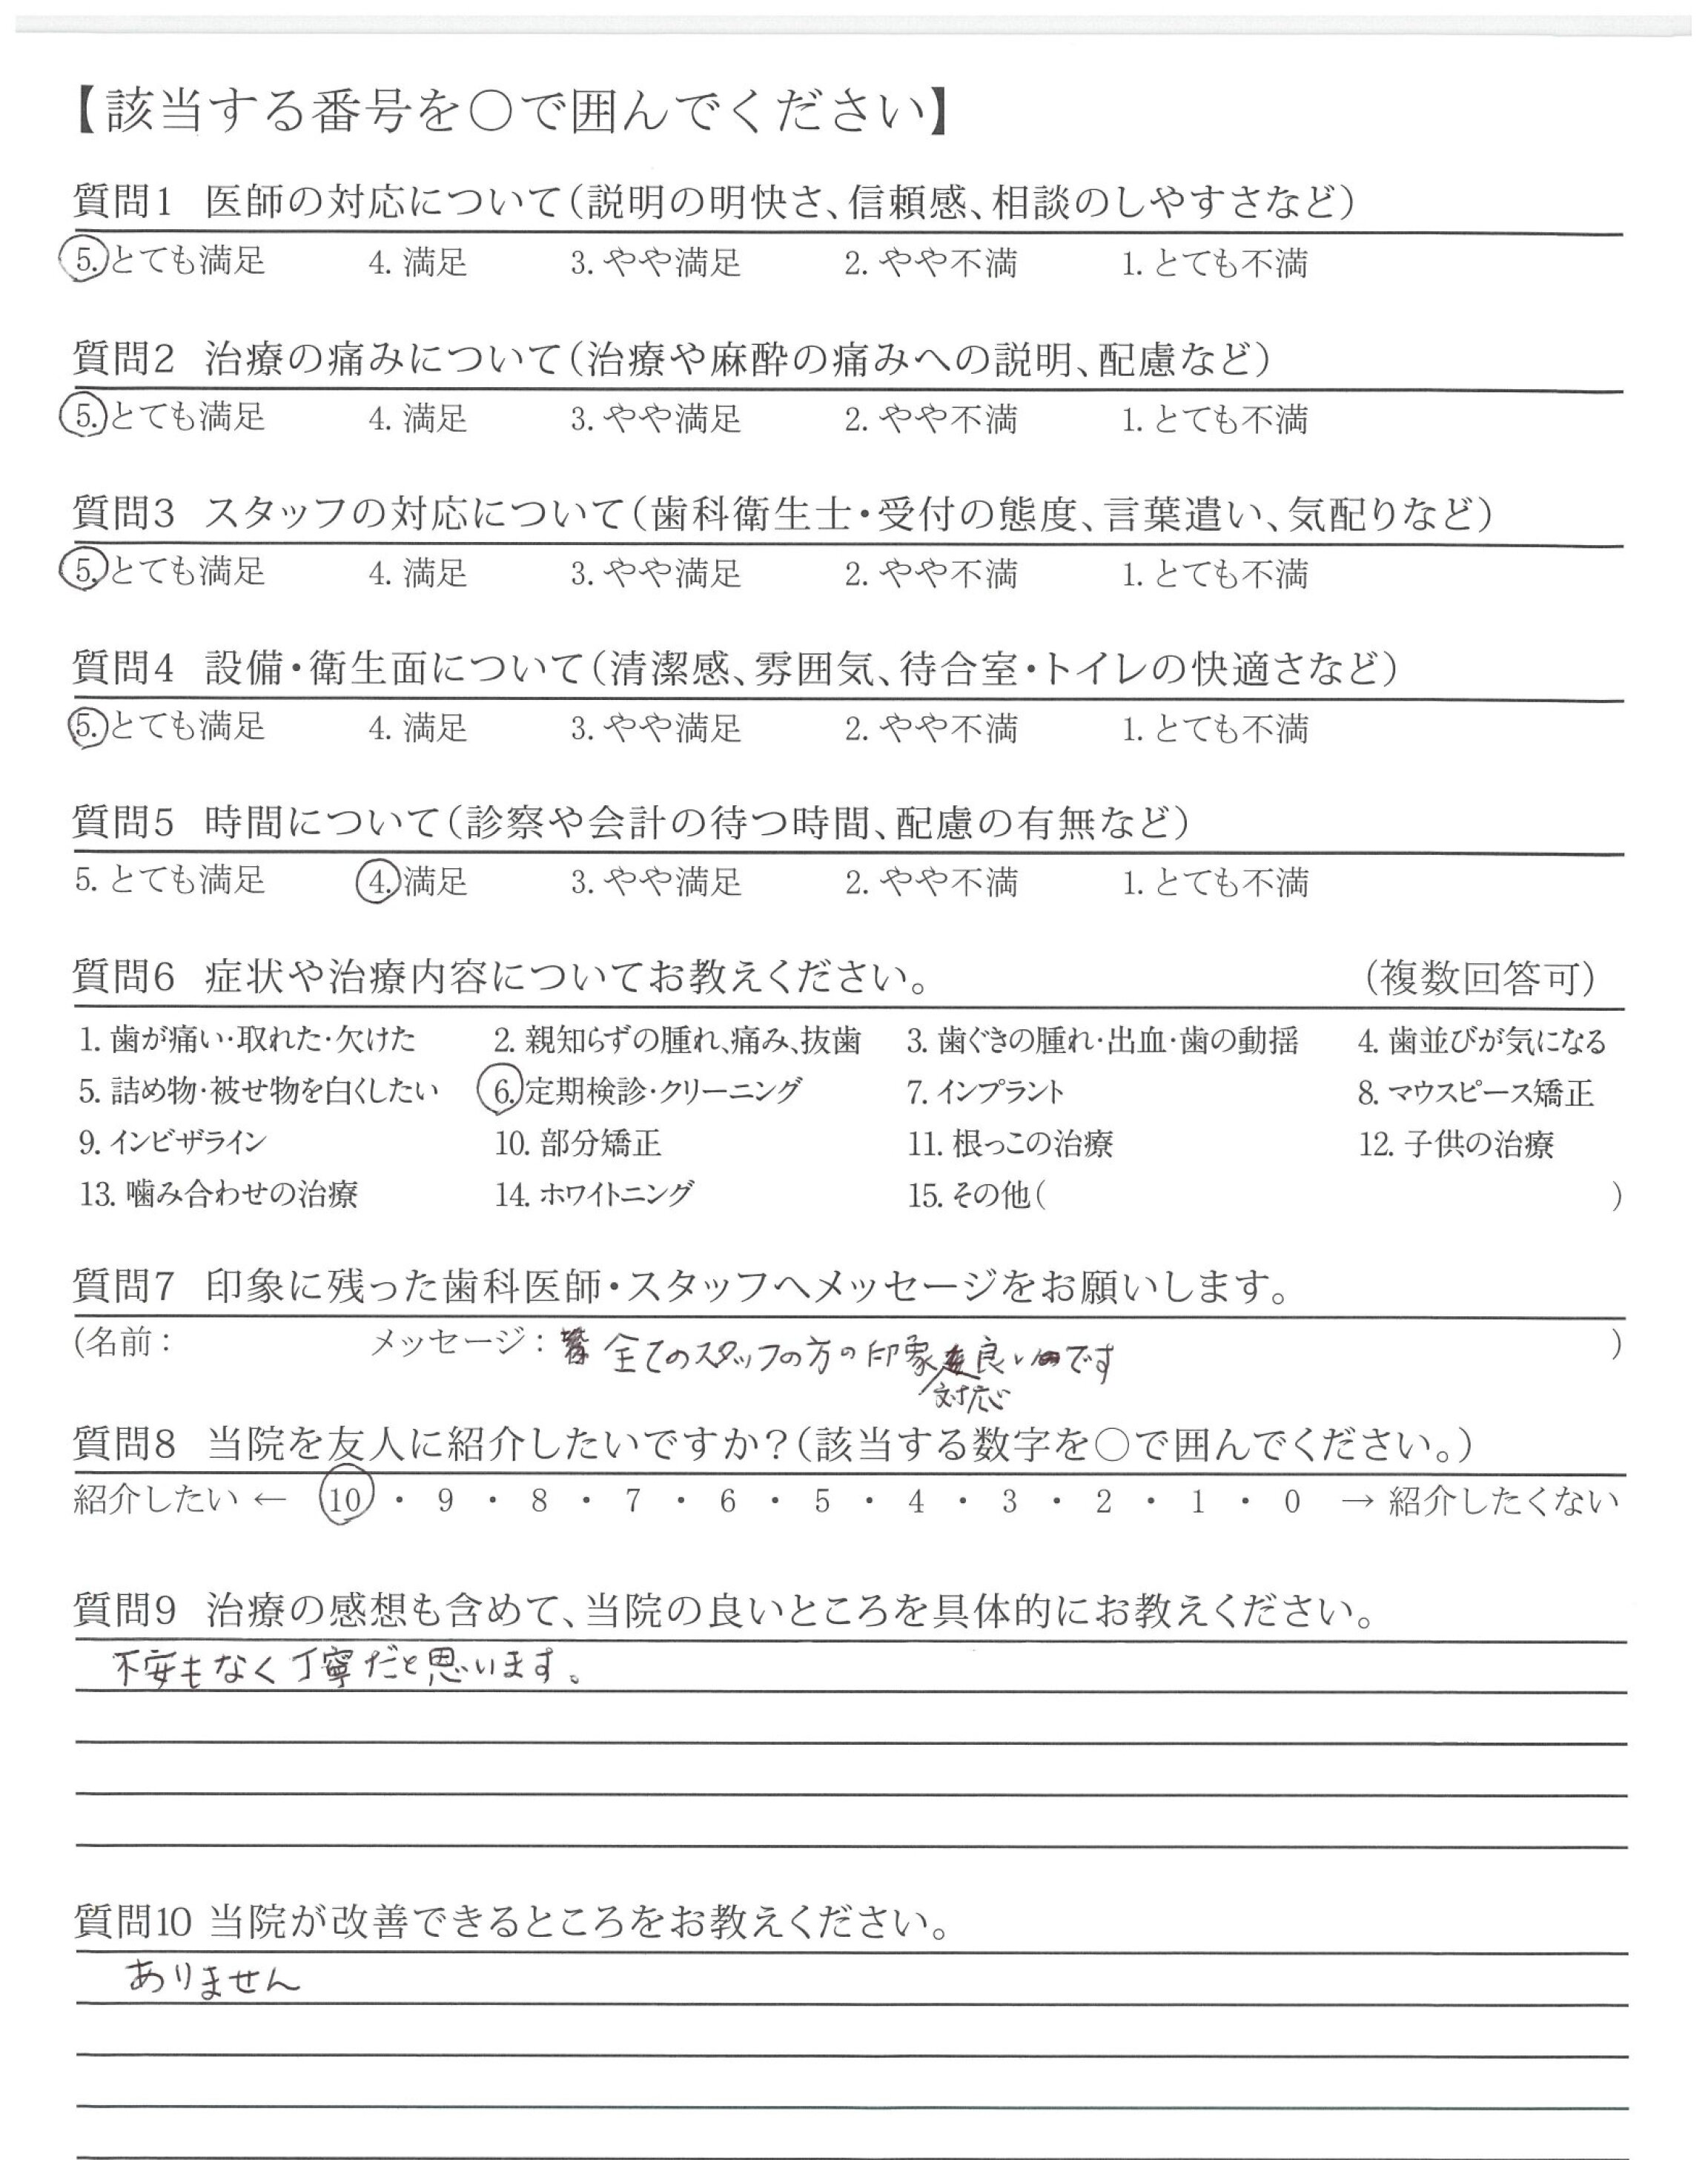 【該当する番号を○で囲んでください】
質問1 医師の対応について(説明の明快さ、信頼感、相談のしやすさなど)
5. とても満足 4. 満足 3. やや満足 2. やや不満 1. とても不満
質問2 治療の痛みについて(治療や麻酔の痛みへの説明、配慮など)
5. とても満足 4. 満足 3. やや満足 2. やや不満 1. とても不満
質問3 スタッフの対応について(歯科衛生士・受付の態度、言葉遣い、気配りなど)
5. とても満足 4. 満足 3. やや満足 2. やや不満 1. とても不満
質問4 設備・衛生面について(清潔感、雰囲気、待合室・トイレの快適さなど)
5. とても満足 4. 満足 3. やや満足 2. やや不満 1. とても不満
質問5 時間について(診察や会計の待つ時間、配慮の有無など)
5. とても満足 4. 満足 3. やや満足 2. やや不満 1. とても不満
質問6 症状や治療内容についてお教えください。 (複数回答可)
1. 歯が痛い・取れた・欠けた 2. 親知らずの腫れ、痛み、抜歯 3. 歯ぐきの腫れ・出血・歯の動揺 4. 歯並びが気になる
5. 詰め物・被せ物を白くしたい 6. 定期検診・クリーニング 7. インプラント 8. マウスピース矯正
9. インビザライン 10. 部分矯正 11. 根っこの治療 12. 子供の治療
13. 噛み合わせの治療 14. ホワイトニング 15. その他( )
質問7 印象に残った歯科医師・スタッフへメッセージをお願いします。
(名前: メッセージ: 全てのスタッフの方の印象 良いです )
対応
質問8 当院を友人に紹介したいですか?(該当する数字を○で囲んでください。)
紹介したい ← 10 ・ 9 ・ 8 ・ 7 ・ 6 ・ 5 ・ 4 ・ 3 ・ 2 ・ 1 ・ 0 → 紹介したくない
質問9 治療の感想も含めて、当院の良いところを具体的にお教えください。
不安もなく丁寧だと思います。
質問10 当院が改善できるところをお教えください。
ありません